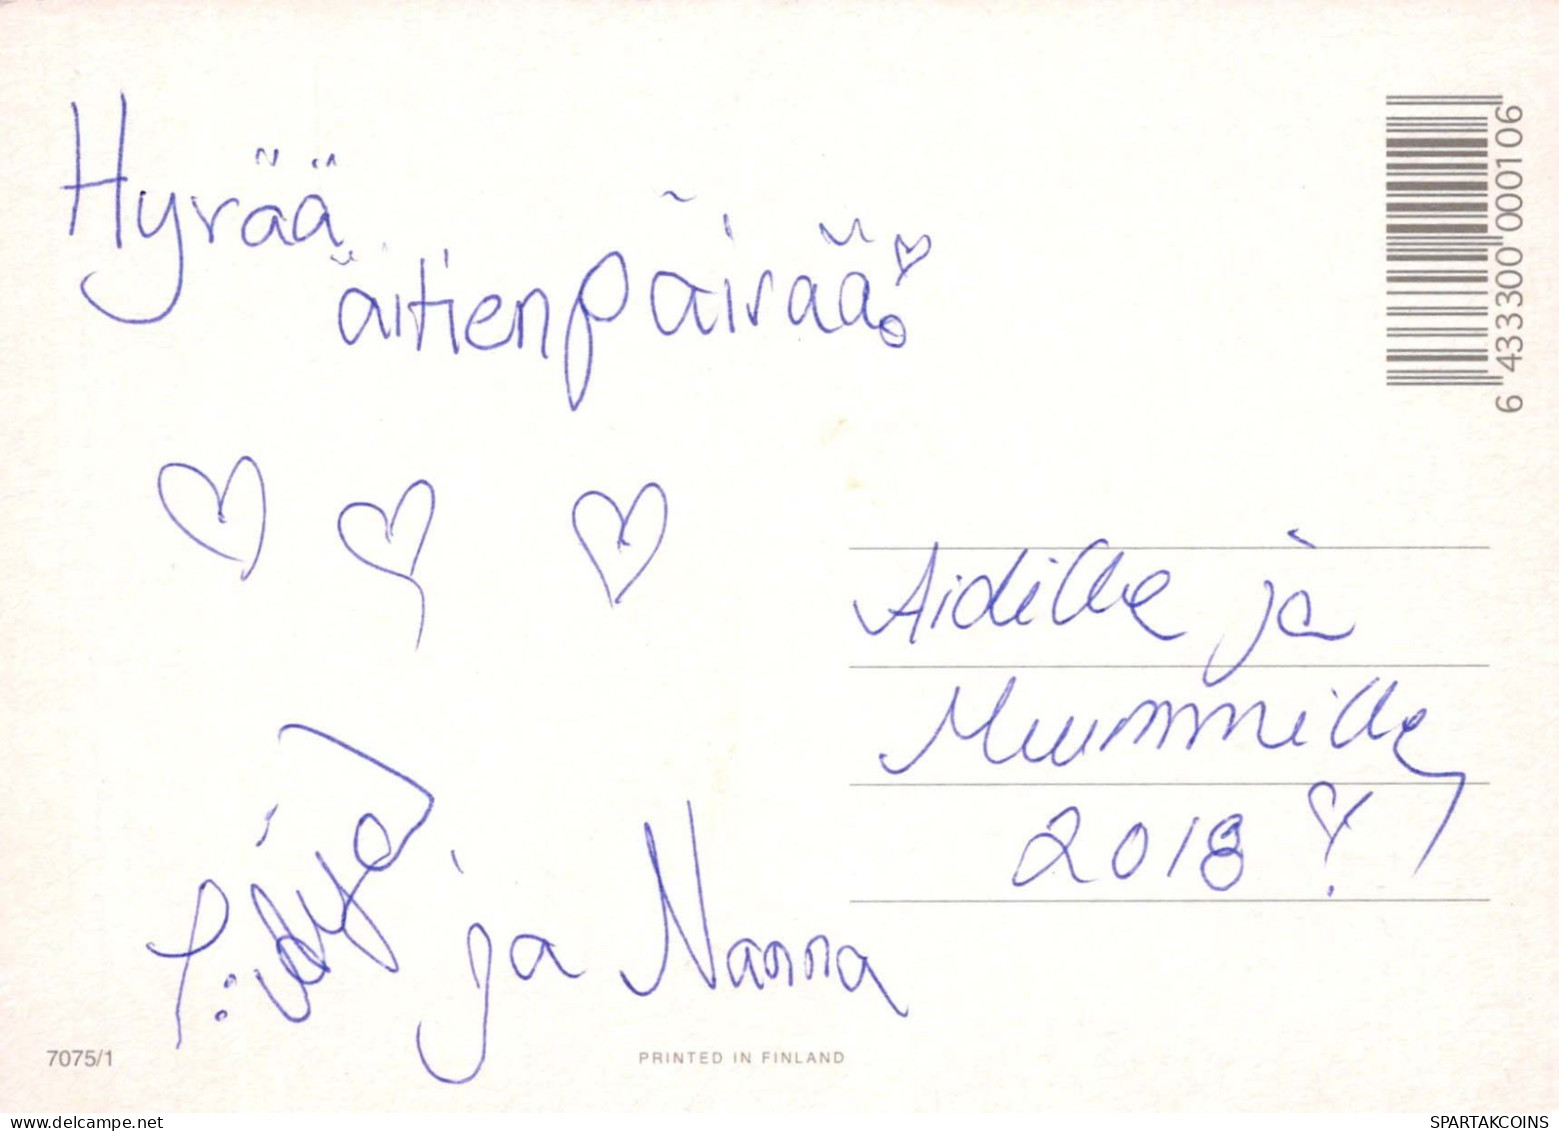 Hyvää
äitienpäivää!
Äidille ja
Muummille
2018
ja Nanna
7075/1
PRINTED IN FINLAND
6 433300 000106
www.delcampe.net
SPARTAKCOINS